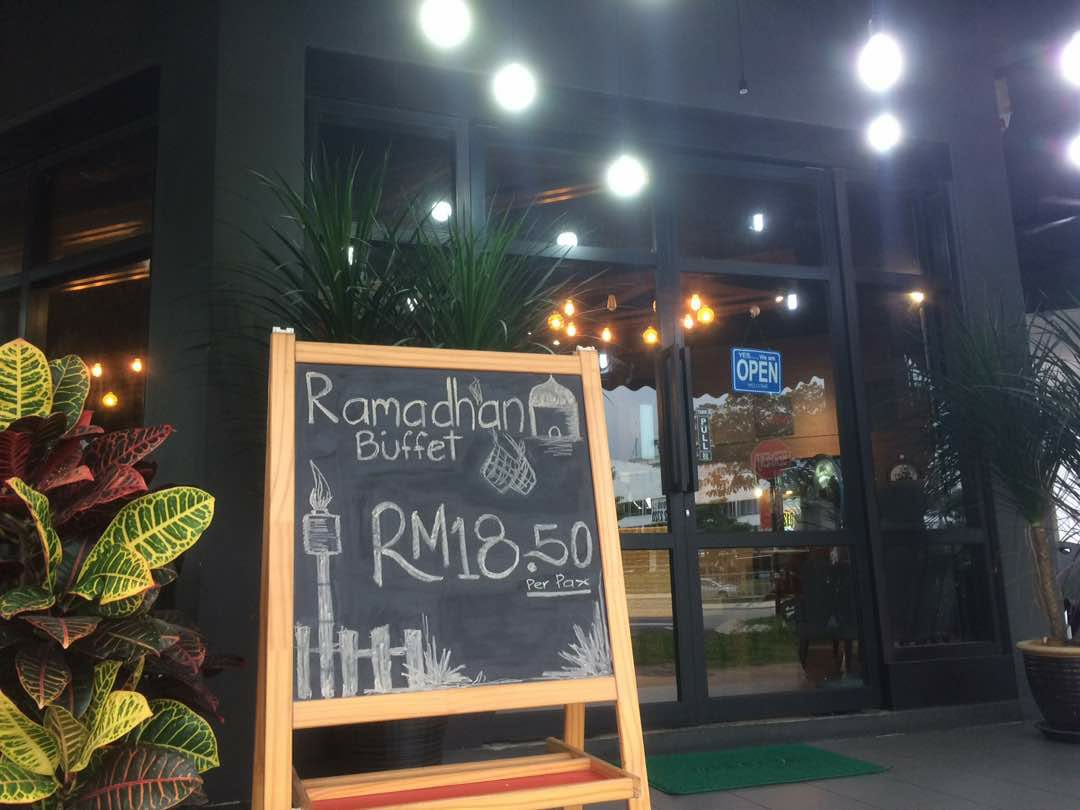 Ramadhan
Buffet
RM18.50
Per Pax
YES..... We are
OPEN
PULL